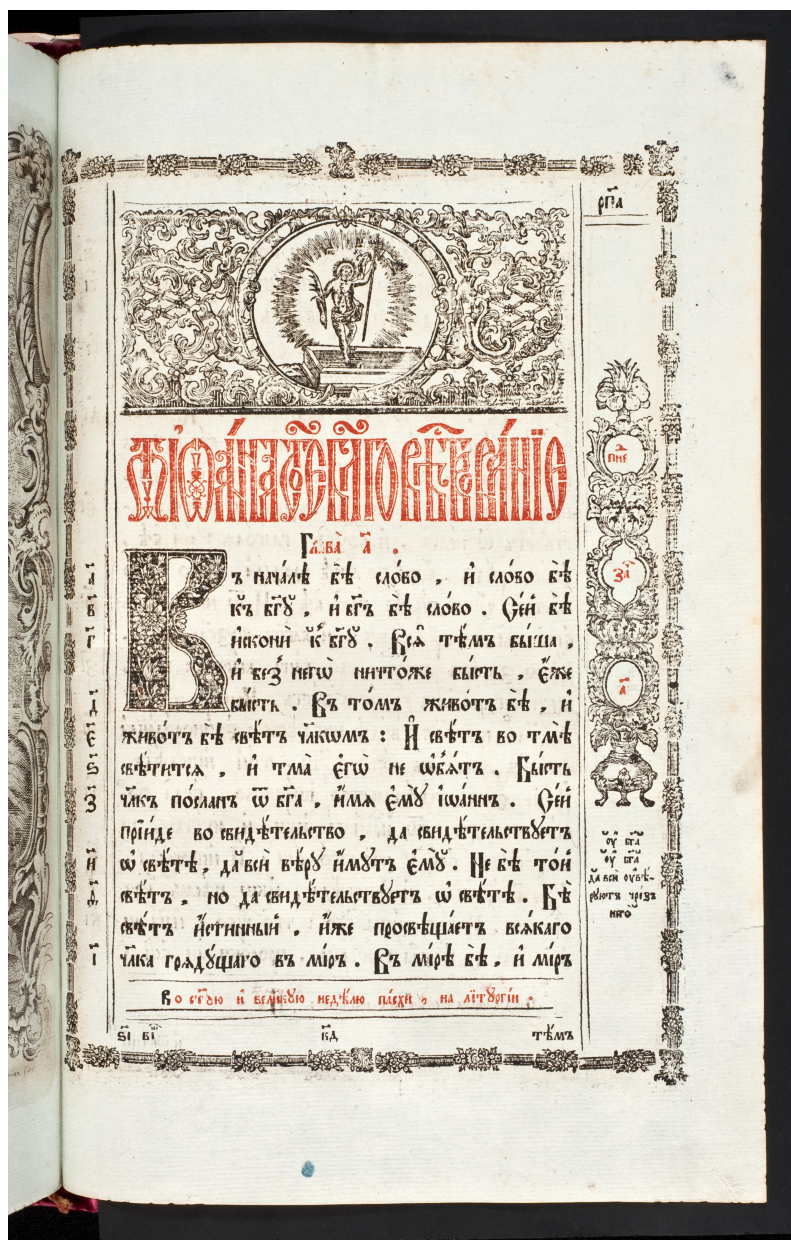 рп҃а
ѿ і҆ѡа́нна ст҃о́е бл҃гов̾ѣствова́нїе
Глава̀ а҃ .
Въ нача́лѣ бѣ̀ сло́во , и҆ сло́во бѣ̀
къ бг҃ꙋ , и҆ бг҃ъ бѣ̀ сло́во . Се́й бѣ̀
и҆сконѝ к̾ бг҃ꙋ . Всѧ̑ тѣ́мъ бы́ша ,
и҆ без̾ негѡ̀ ничто́же бы́сть , є҆́же
бы́сть . Въ то́мъ живо́тъ бѣ̀ , и҆
живо́тъ бѣ̀ свѣ́тъ чл҃кѡмъ : И҆ свѣ́тъ во тмѣ̀
свѣ́титсѧ , и҆ тма̀ є҆гѡ̀ не ѡ҆б̾ѧ́тъ . Бы́сть
чл҃къ по́сланъ ѿ бг҃а , и҆́мѧ є҆мꙋ̀ і҆ѡа́ннъ . Се́й
прїи́де во свидѣ́тельство , да свидѣ́тельствꙋетъ
ѡ҆ свѣ́тѣ , да̀ всѝ вѣ́рꙋ и҆́мꙋтъ є҆мꙋ̀ . Не бѣ̀ то́й
свѣ́тъ , но да свидѣ́тельствꙋетъ ѡ҆ свѣ́тѣ . Бѣ̀
свѣ́тъ и҆́стинный , и҆́же просвѣща́етъ всѧ́каго
чл҃ка грѧдꙋ́щаго въ мі́ръ . Въ мі́рѣ бѣ̀ , и҆ мі́ръ
а҃
в҃
г҃
д҃
є҃
ѕ҃
з҃
и҃
ѳ҃
і҃
пнеⷣ
за҃
а҃
ᲂу҆̀ бг҃а
ᲂу҆̀ бг҃а
да̀ всѝ ᲂувѣ́-
рꙋютъ чре́зъ
него̀
Во ст҃ꙋ́ю и҆ вели́кꙋю недѣ́лю па́схи , на лїтꙋргі́и .
ѕ҃і в҃і
к҃д
тѣ́мъ